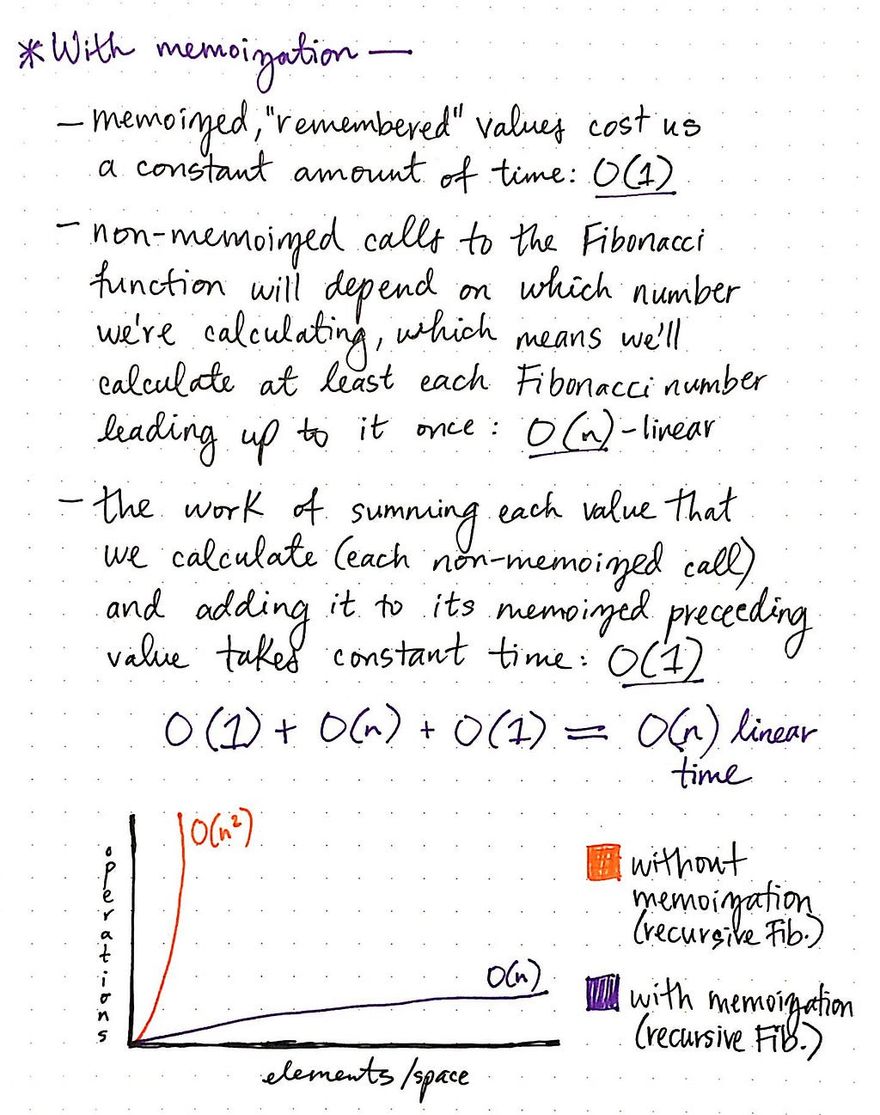 *With memoization —
- memoized, "remembered" values cost us
a constant amount of time: O(1)
- non-memoized calls to the Fibonacci
function will depend on which number
we're calculating, which means we'll
calculate at least each Fibonacci number
leading up to it once: O(n) - linear
- the work of summing each value that
we calculate (each non-memoized call)
and adding it to its memoized preceeding
value takes constant time: O(1)
O(1) + O(n) + O(1) = O(n) linear
time
O(n²)
operations
O(n)
elements/space
without
memoization
(recursive Fib.)
with memoization
(recursive Fib.)